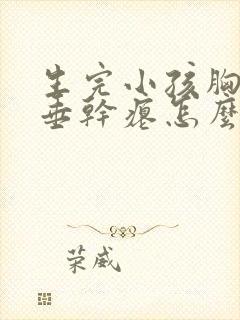 生完小孩胸
垂幹癟怎麼
荣威